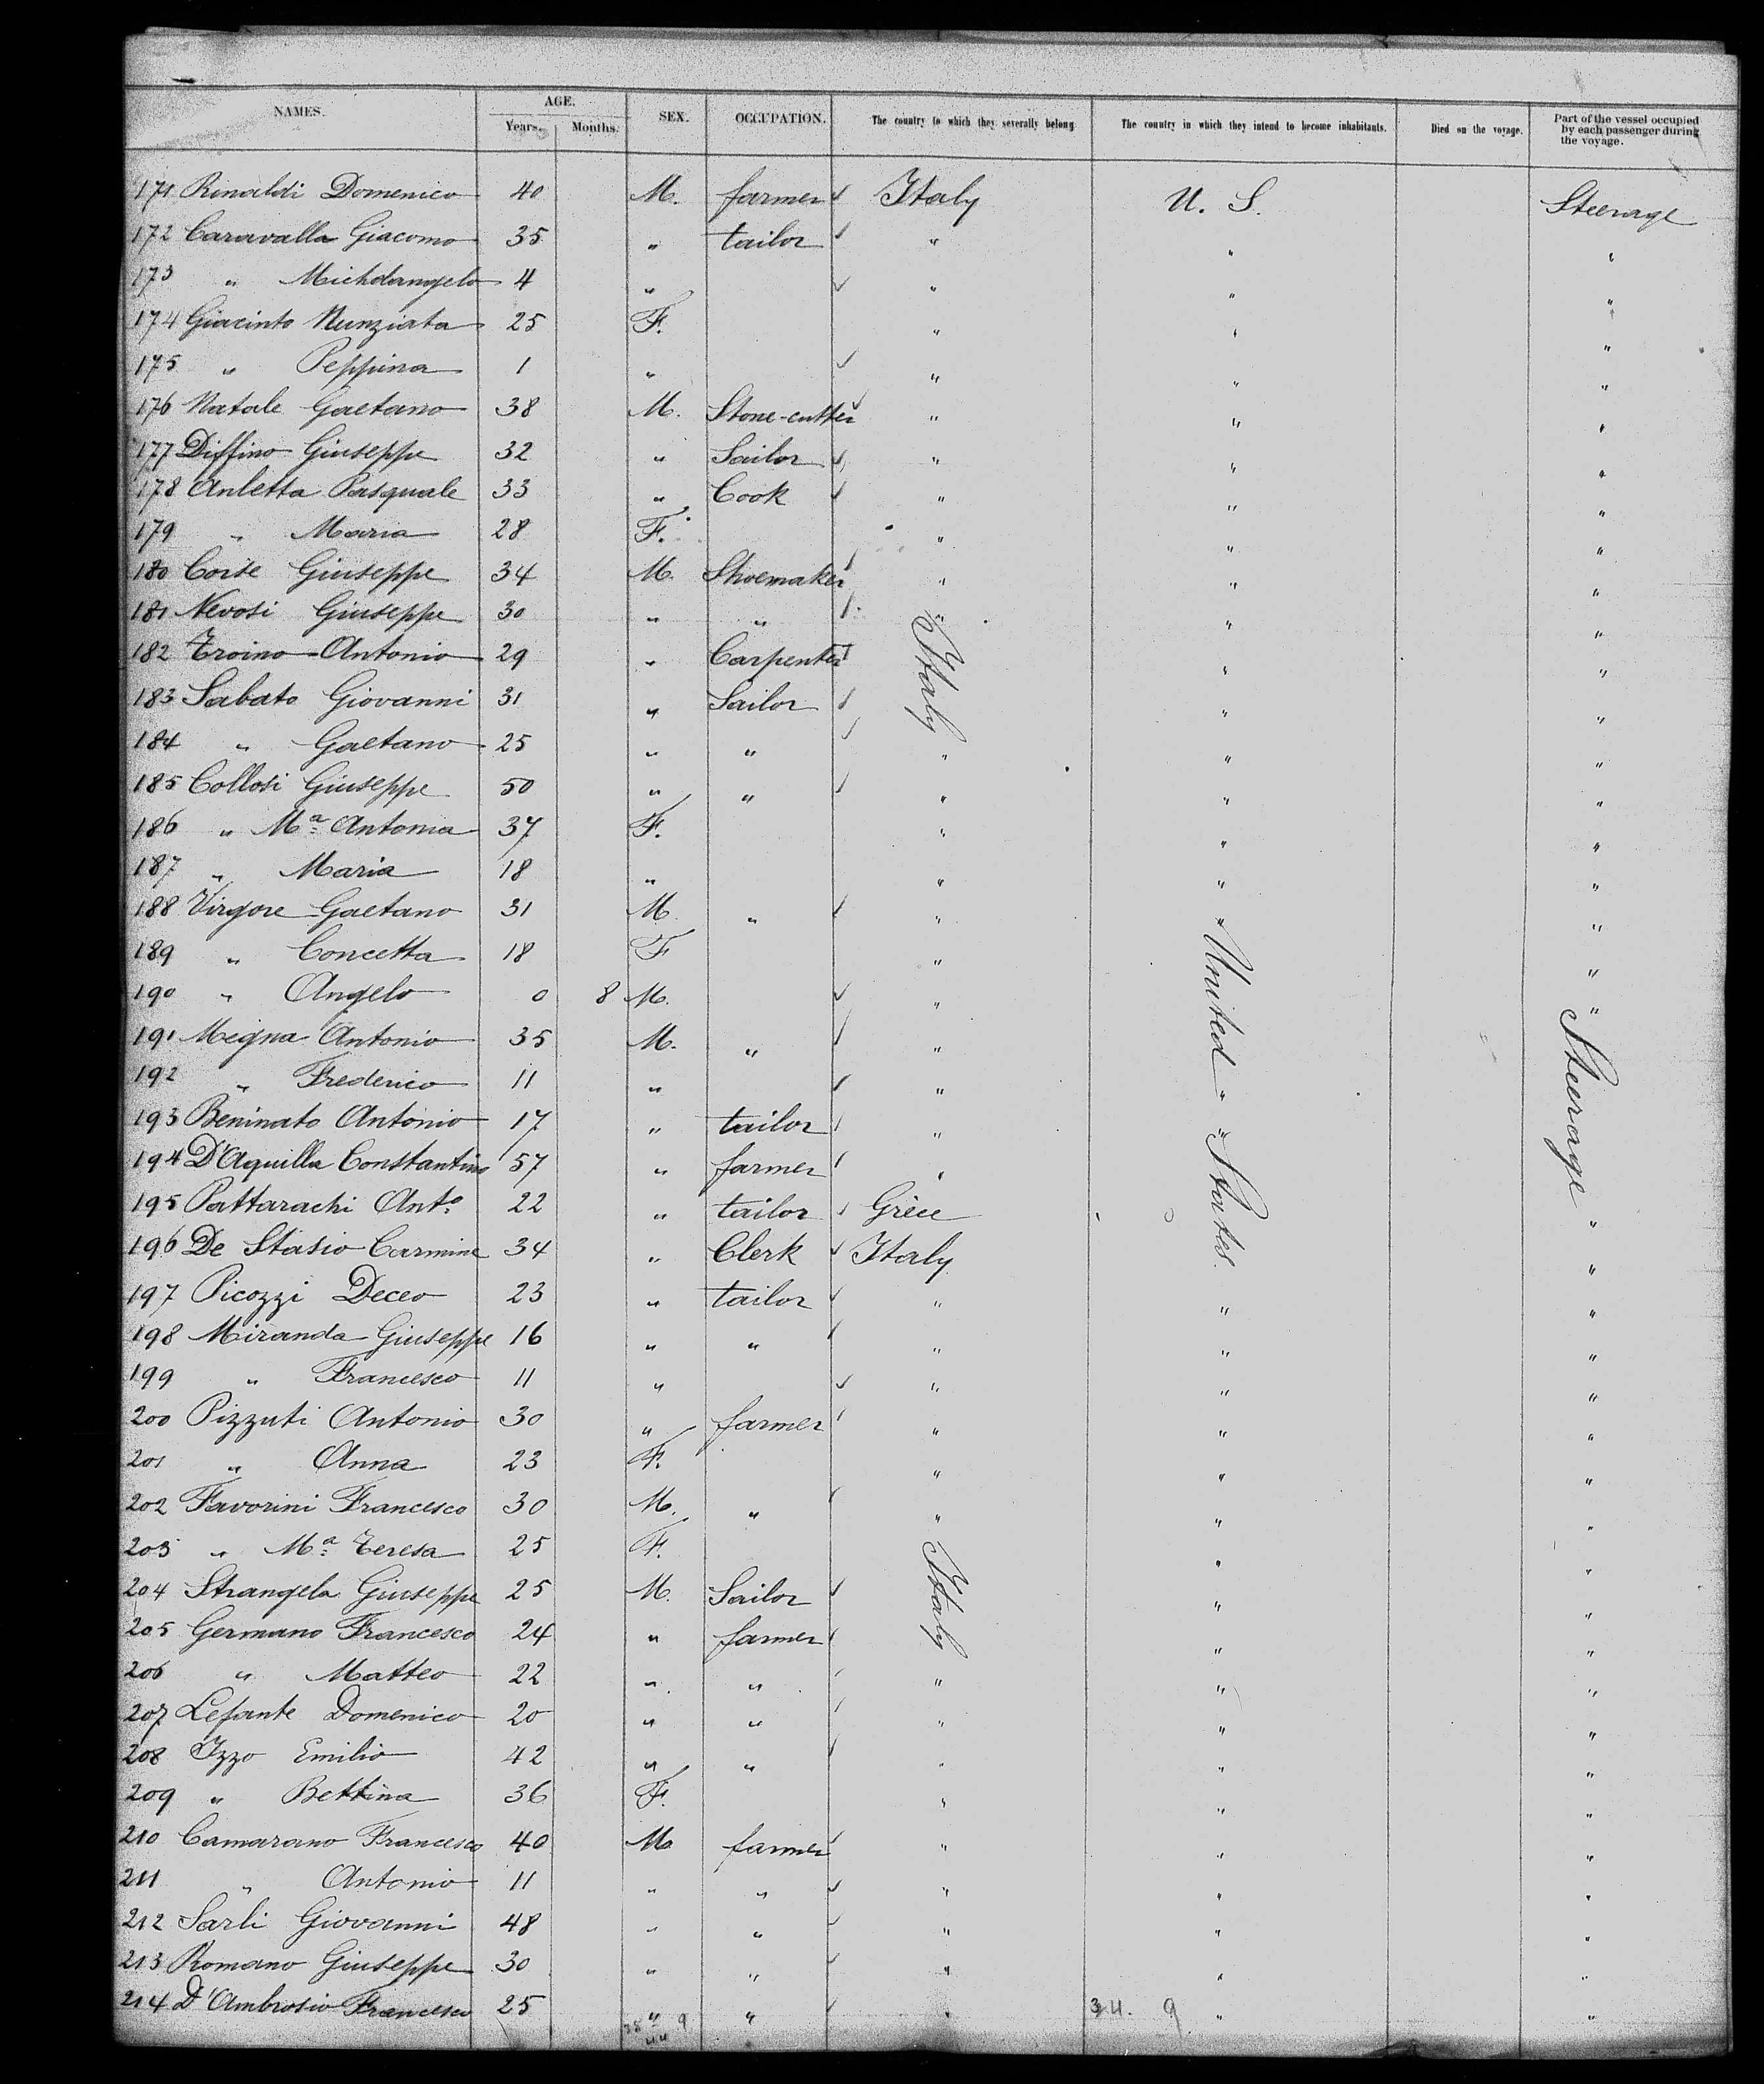 NAMES. AGE. SEX. OCCUPATION. The country to which they severally belong. The country in which they intend to become inhabitants. Died on the voyage. Part of the vessel occupied by each passenger during the voyage.
Years. Months.
171 Rinaldi Domenico 40 M. farmer Italy U. S. Steerage
172 Caravalla Giacomo 35 " tailor " " "
173 " Michelangelo 4 " " " "
174 Giacinto Nunziata 25 F. " " "
175 " Peppina 1 " " " "
176 Natale Gaetano 38 M. Stone-cutter " " "
177 Diffino Giuseppe 32 " Sailor " " "
178 Anletta Pasquale 33 " Cook " " "
179 " Maria 28 F. " " "
180 Corse Giuseppe 34 M. Shoemaker " " "
181 Nevosi Giuseppe 30 " " " " "
182 Troino Antonio 29 " Carpenter Italy " "
183 Sabato Giovanni 31 " Sailor " "
184 " Gaetano 25 " " " " "
185 Collosi Giuseppe 50 " " " " "
186 " Mª Antonia 37 F. " " "
187 " Maria 18 " " " "
188 Virgore Gaetano 31 M. " " " "
189 " Concetta 18 F " United States "
190 " Angelo 0 8 M. " "
191 Migna Antonio 35 M. " " Steerage
192 " Frederico 11 " " "
193 Beninato Antonio 17 " tailor " "
194 D'Aquilla Constantino 57 " farmer "
195 Pattarachi Antº 22 " tailor Grèce "
196 De Stasio Carmine 34 " Clerk Italy "
197 Picozzi Deceo 23 " tailor " " "
198 Miranda Giuseppe 16 " " " " "
199 " Francesco 11 " " " "
200 Pizzuti Antonio 30 " farmer " " "
201 " Anna 23 F. " " "
202 Favorini Francesco 30 M. " " " "
203 " Mª Teresa 25 F. Italy " "
204 Strangela Giuseppe 25 M. Sailor " "
205 Germano Francesco 24 " farmer " "
206 " Matteo 22 " " " " "
207 Lefante Domenico 20 " " " " "
208 Izzo Emilio 42 " " " " "
209 " Bettina 36 F. " " "
210 Camarano Francesco 40 M farmer " " "
211 " Antonio 11 " " " " "
212 Sarli Giovanni 48 " " " " "
213 Romano Giuseppe 30 " " " " "
214 D'Ambrosio Francesco 25 " " " " "
35 9 34. 9
44